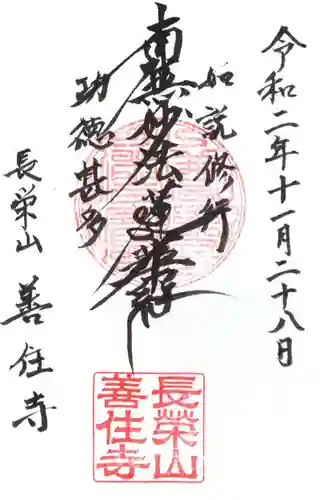 令和二年十一月二十八日
如説修行
南無妙法蓮華経
功徳甚多
長栄山
善住寺
長榮山
善住寺